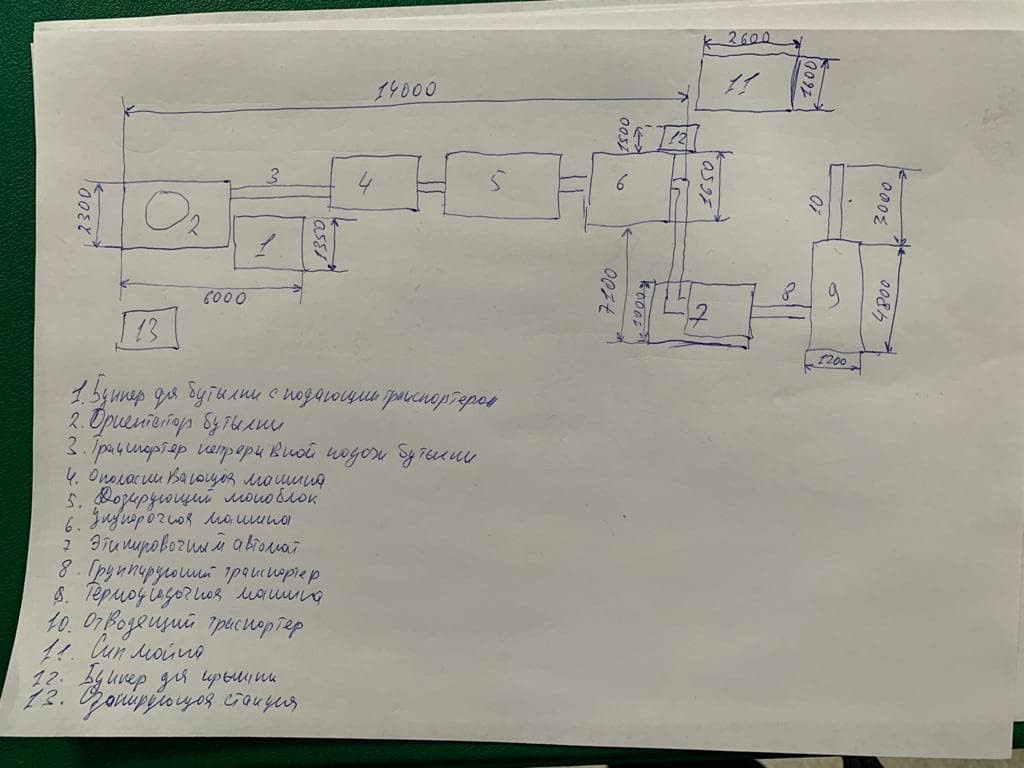 2600
11
1600
14000
1500
12
2300
2
3
4
5
6
1650
10
3000
1
1350
6000
7100
1000
7
8
9
4800
1200
13
1. Бункер для бутылки с подающим транспортером
2. Ориентатор бутылки
3. Транспортер непрерывной подачи бутылки
4. Ополаскивающая машина
5. Дозирующий моноблок
6. Укупорочная машина
7 Этикировочный автомат
8. Группирующий транспортер
9. Термоусадочная машина
10. Отводящий траспортер
11. Сип мойка
12. Бункер для крышки
13. Озонирующая станция